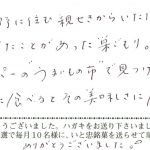 野に住む親せきからいただ
たことがあった巣ごもり。
パーの"うまいもの市"で見つけ
に食べるとその美味しさに
うございました。ハガキをお送り下さいまし
選で毎月10名様に、いと忠銘菓を送らせて頂
ありがとうございました。